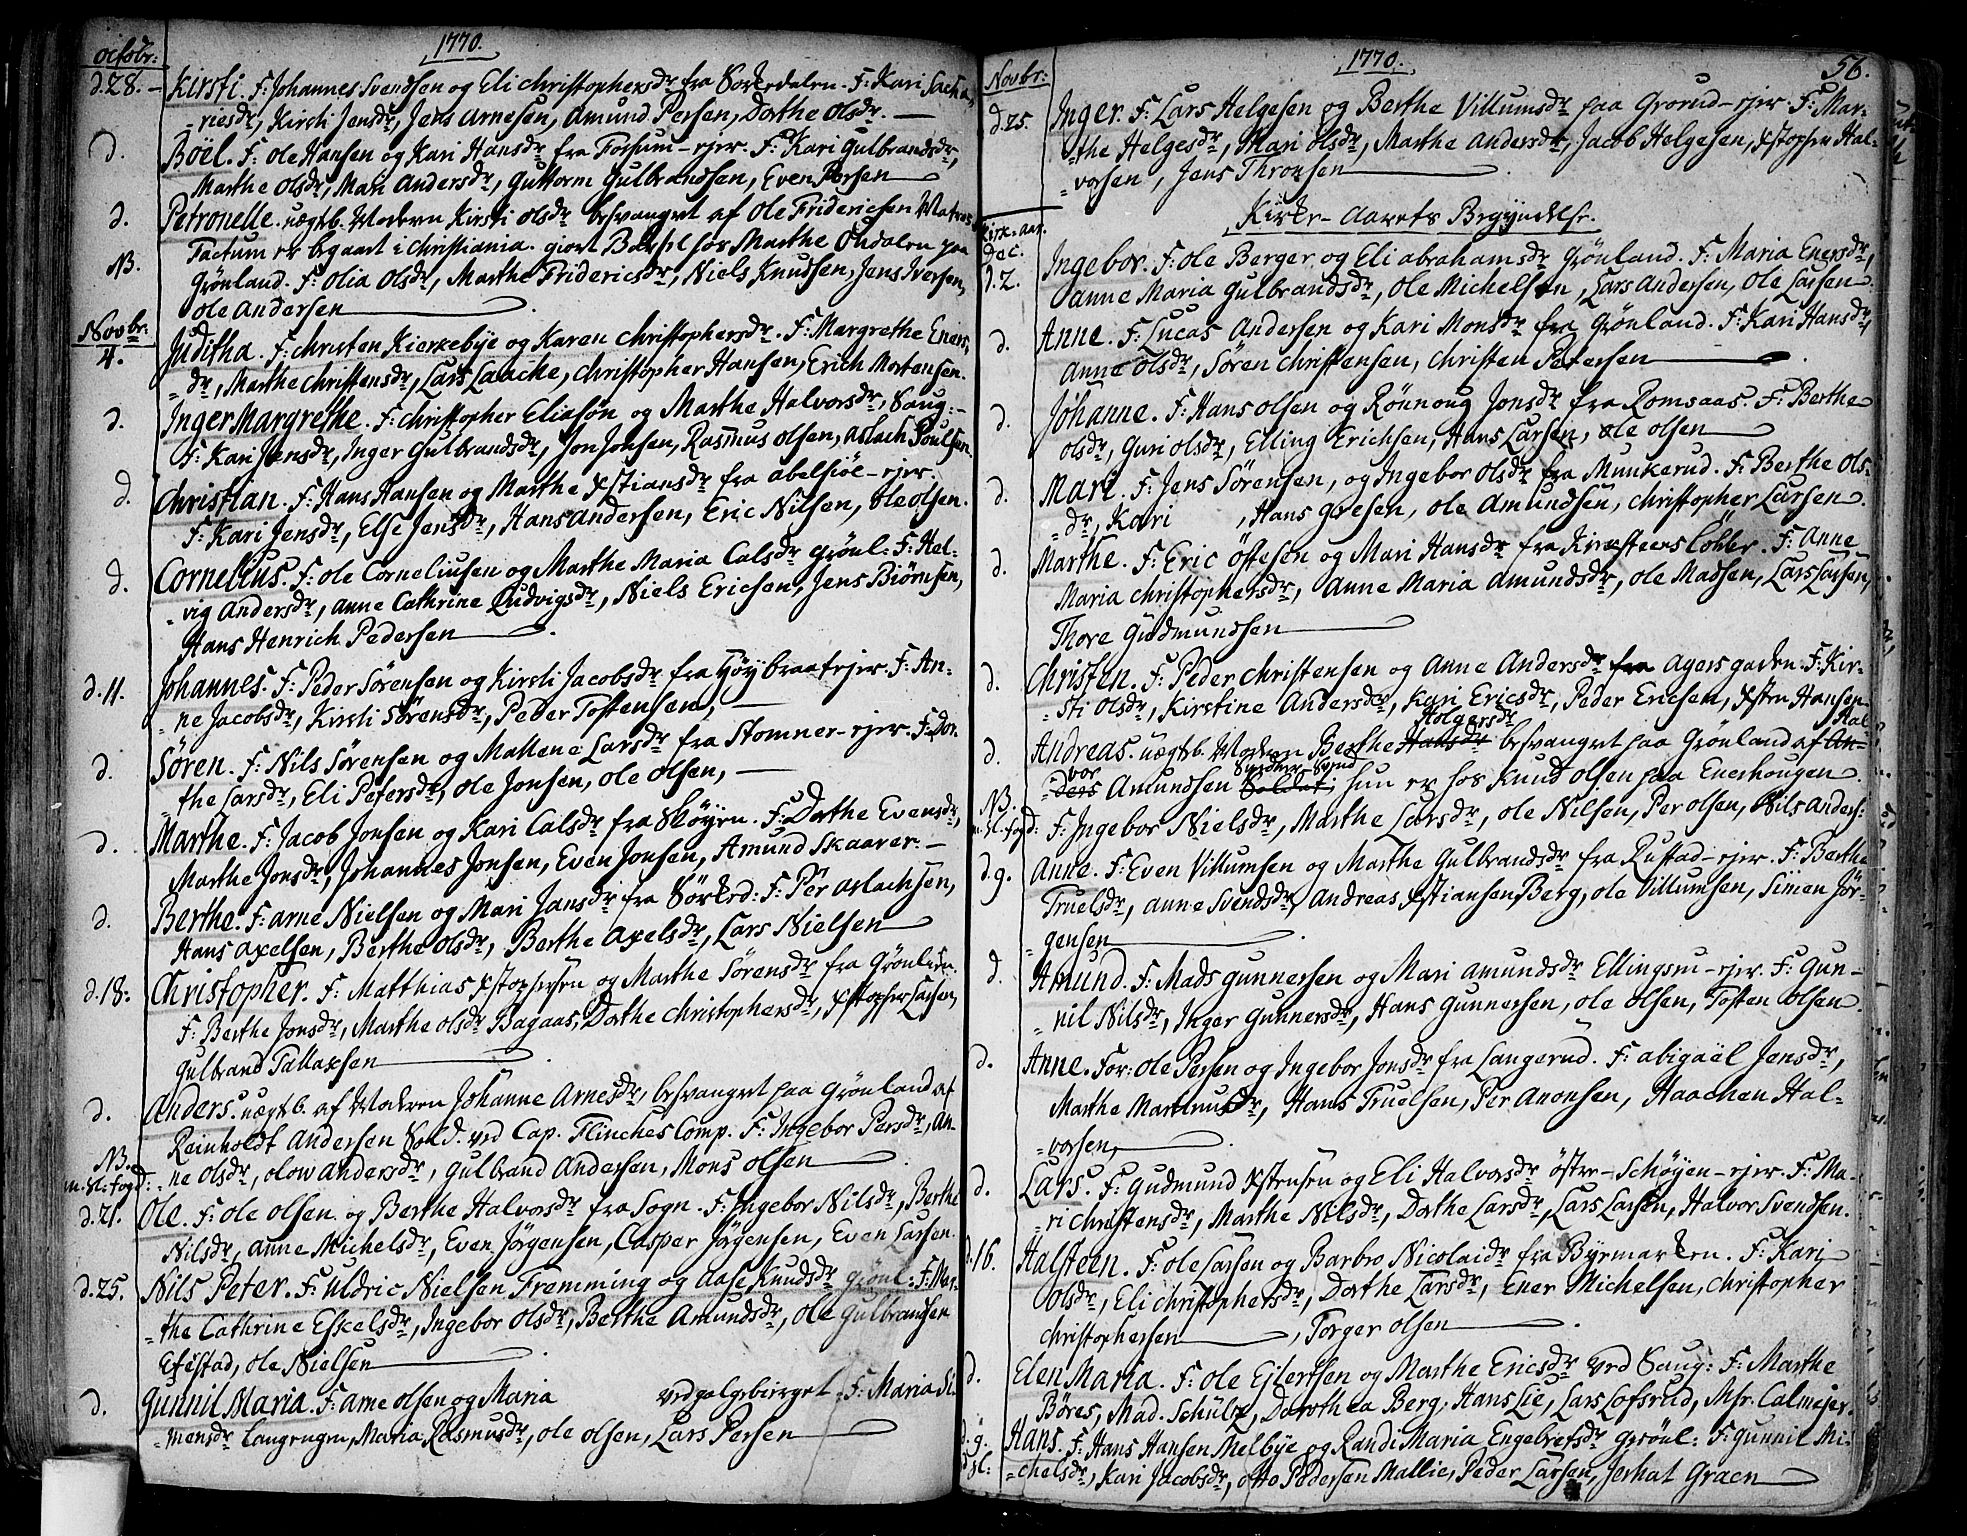 1770.
octobr:
d.28. – Kirsti. F: Johannes Svendsen og Eli Christophersdr fra Sørkedalen. F: Kari Sacha-
-riesdr, Kirsti Jensdr, Jens Arnesen, Amund Persen, Dorthe Olsdr. —
d. Boel. F: Ole Hansen og Kari Hansdr fra Fossum-ejer. F: Kari Gulbrandsdr,
Marthe Olsdr, Mari Andersdr, Guttorm Gulbrandsen, Even Persen
d. Petronelle. uægtb. Moderen Kirsti Olsdr besvangret af Ole Friderichsen Matros
Factum er begaaet i Christiania. giort hos Marthe Ondalen paa
NB. Grønland. F: Olia Olsdr, Marthe Fridericsdr, Niels Knudsen, Jens Iversen,
Ole Andersen
Novbr:
4. Juditha. F: Christen Kierkebye og Karen Christophersdr. F: Margrethe Eners-
-dr, Marthe Christensdr, Lars Laache, Christopher Hansen, Erich Mortensen.
d. Inger Margrethe. F: Christopher Eliasøn og Marthe Halvorsdr, Saug:-
F: Kari Jensdr, Inger Gulbrandsdr, Jon Jonsen, Rasmus Olsen, Aslach Poulsen.
d. Christian. F: Hans Hansen og Marthe Xstiansdr fra Abelsiøe-ejer.
F: Kari Jensdr, Else Jensdr, Hans Andersen, Eric Nilsen, Ole Olsen.
d. Cornelius. F: Ole Corneliusen og Marthe Maria Calsdr Grönl: F: Hel-
-vig Andersdr, Anne Cathrine Ludvigsdr, Niels Ericsen, Jens Biörnsen,
Hans Henrich Pedersen
d.11. Johannes. F: Peder Sørensen og Kirsti Jacobsdr fra Høybraat ejer. F: An-
-ne Jacobsdr, Kirsti Sørensdr, Peder Tostensen, —
d. Søren. F: Nils Sørensen og Mallene Larsdr fra Stomner-ejer. F: Dor-
-the Larsdr, Eli Petersdr, Ole Jonsen, Ole Olsen, —
d. Marthe. F: Jacob Jonsen og Kari Calsdr fra Skøyen. F: Dorthe Evensdr,
Marthe Jonsdr, Johannes Jonsen, Even Jonsen, Amund Skaarer. —
d. Berthe. F: Arne Nielsen og Mari Jansdr fra Sørked: F: Per Aslachsen,
Hans Axelsen, Berthe Olsdr, Berthe Axelsdr, Lars Nielsen
d.18: Christopher. F: Matthias Xstophersen og Marthe Sörensdr fra Grönlien.
F: Berthe Jonsdr, Marthe Olsdr Bagaas, Dorthe Christophersdr, Xstopher Larsen,
Gulbrand Tallaxsen
d. Anders. uægtb. af Moderen Johanne Arnesdr, besvangret paa Grönland af
Reinholdt Andersen Sold. ved Cap. Flinches Comp. F: Ingebor Persdr, An-
NB. m. sl: fogd: -ne Olsdr, Olow Andersdr, Gulbrand Andersen, Mons Olsen
d.21. Ole. F: Ole Olsen og Berthe Halvorsdr fra Sogn. F: Ingebor Nilsdr, Berthe
Nilsdr, Anne Michelsdr, Even Jörgensen, Casper Jörgensen, Even Larsen.
d.25. Nils Peter. F: Uldric Nielsen Fremming og Aase Knudsdr Grönl: F: Mar-
-the Cathrine Eskelsdr, Ingebor Olsdr, Berthe Amundsdr, Ole Gulbrandsen
Efestad, Ole Nielsen
d. Gunnil Maria. F: Arne Olsen og Maria ved galgebierget. F: Maria Si-
-mensdr Langengen, Maria Rasmusdr, Ole Olsen, Lars Persen
1770. 56.
Novbr:
d.25. Inger. F: Lars Helgesen og Berthe Villumsdr paa Grorud-ejer. F: Mar-
-the Helgesdr, Mari Olsdr, Marthe Andersdr, Jacob Helgesen, Xstopher Hal-
-vorsen, Jens Thronsen
Kirke-Aarets Begyndelse.
Kirk. aar.
Dec.
d.2. Ingebor. F: Ole Berger og Eli Abrahamsdr Grönland. F: Maria Enersdr,
Anne Maria Gulbrandsdr, Ole Michelsen, Lars Andersen, Ole Larsen
d. Anne. F: Lucas Andersen og Kari Monsdr fra Grönland. F: Kari Hansdr,
Anne Olsdr, Sören Christensen, Christen Petersen
d. Johanne. F: Hans Olsen og Rönnoug Jonsdr fra Romsaas. F: Berthe
Olsdr, Guri Olsdr, Elling Erichsen, Hans Larsen, Ole Olsen
d. Mari. F: Jens Sörensen, og Ingebor Olsdr fra Munkerud. F: Berthe Ols-
-dr, Kari , Hans Gresen, Ole Amundsen, Christopher Larsen
d. Marthe. F: Eric Östesen og Mari Hansdr fra Kirsteens Löbber. F: Anne
Maria Christophersdr, Anne Maria Amundsdr, Ole Madsen, Lars Larsen,
Thore Gudmundsen
d. Christen. F: Peder Christensen og Anne Andersdr fra Agersgaden. F: Kir-
-sti Olsdr, Kirstine Andersdr, Kari Ericsdr, Peder Ericsen, Xsten Hansen
d. Andreas. uægtb. Moderen Berthe Hansdr Holgersdr besvangret paa Grönland af An- Hal-
-ders vor Amundsen Soldat, Svend hun er hos Knud Olsen paa Enerhougen
NB. m. sl. fogd: F: Ingebor Nielsdr, Marthe Larsdr, Ole Nilsen, Per Olsen, Nils Anders:
d.9. Anne. F: Even Villumsen og Marthe Gulbrandsdr fra Rustad-ejer. F: Berthe
Truelsdr, Anne Svendsdr, Andreas Xstiansen Berg, Ole Villumsen, Simen Jör-
-gensen
d. Amund. F: Mads Gunnersen og Mari Amundsdr Ellingsru-ejer. F: Gun-
-nil Nilsdr, Inger Gunnersdr, Hans Gunnersen, Ole Olsen, Tosten Olsen
d. Anne. For: Ole Persen og Ingebor Jonsdr fra Langerud. F: Abigaël Jensdr,
Marthe Martinusdr, Hans Truelsen, Per Aronsen, Haachen Hal-
-vorsen,
d. Lars. F: Gudmund Xstensen og Eli Halvorsdr östre-Schöyen-ejer. F: Ma-
-ri Christensdr, Marthe Nilsdr, Dorthe Larsdr, Lars Larsen, Halvor Svendsen.
d.16. Halsteen. F: Ole Larsen og Barbro Nicolaidr fra Byemarken. F: Kari
Olsdr, Eli Christophersdr, Dorthe Larsdr, Ener Michelsen, Christopher
Christophersen, Torger Olsen
d. Elen Maria. F: Ole Ejlertsen og Marthe Ericsdr ved Saug: F: Marthe
Böres, Mad. Schültz, Dorothea Berg, Hans Lie, Lars Lofsrud, Msr. Calmejer.
d.g. sl: Hans. F: Hans Hansen Melbye og Randi Maria Engebretsdr Grönl: F: Gunnil Mi-
-chelsdr, Kari Jacobsdr, Otto Pedersen Mallie, Peder Larsen, Jerhat Graen